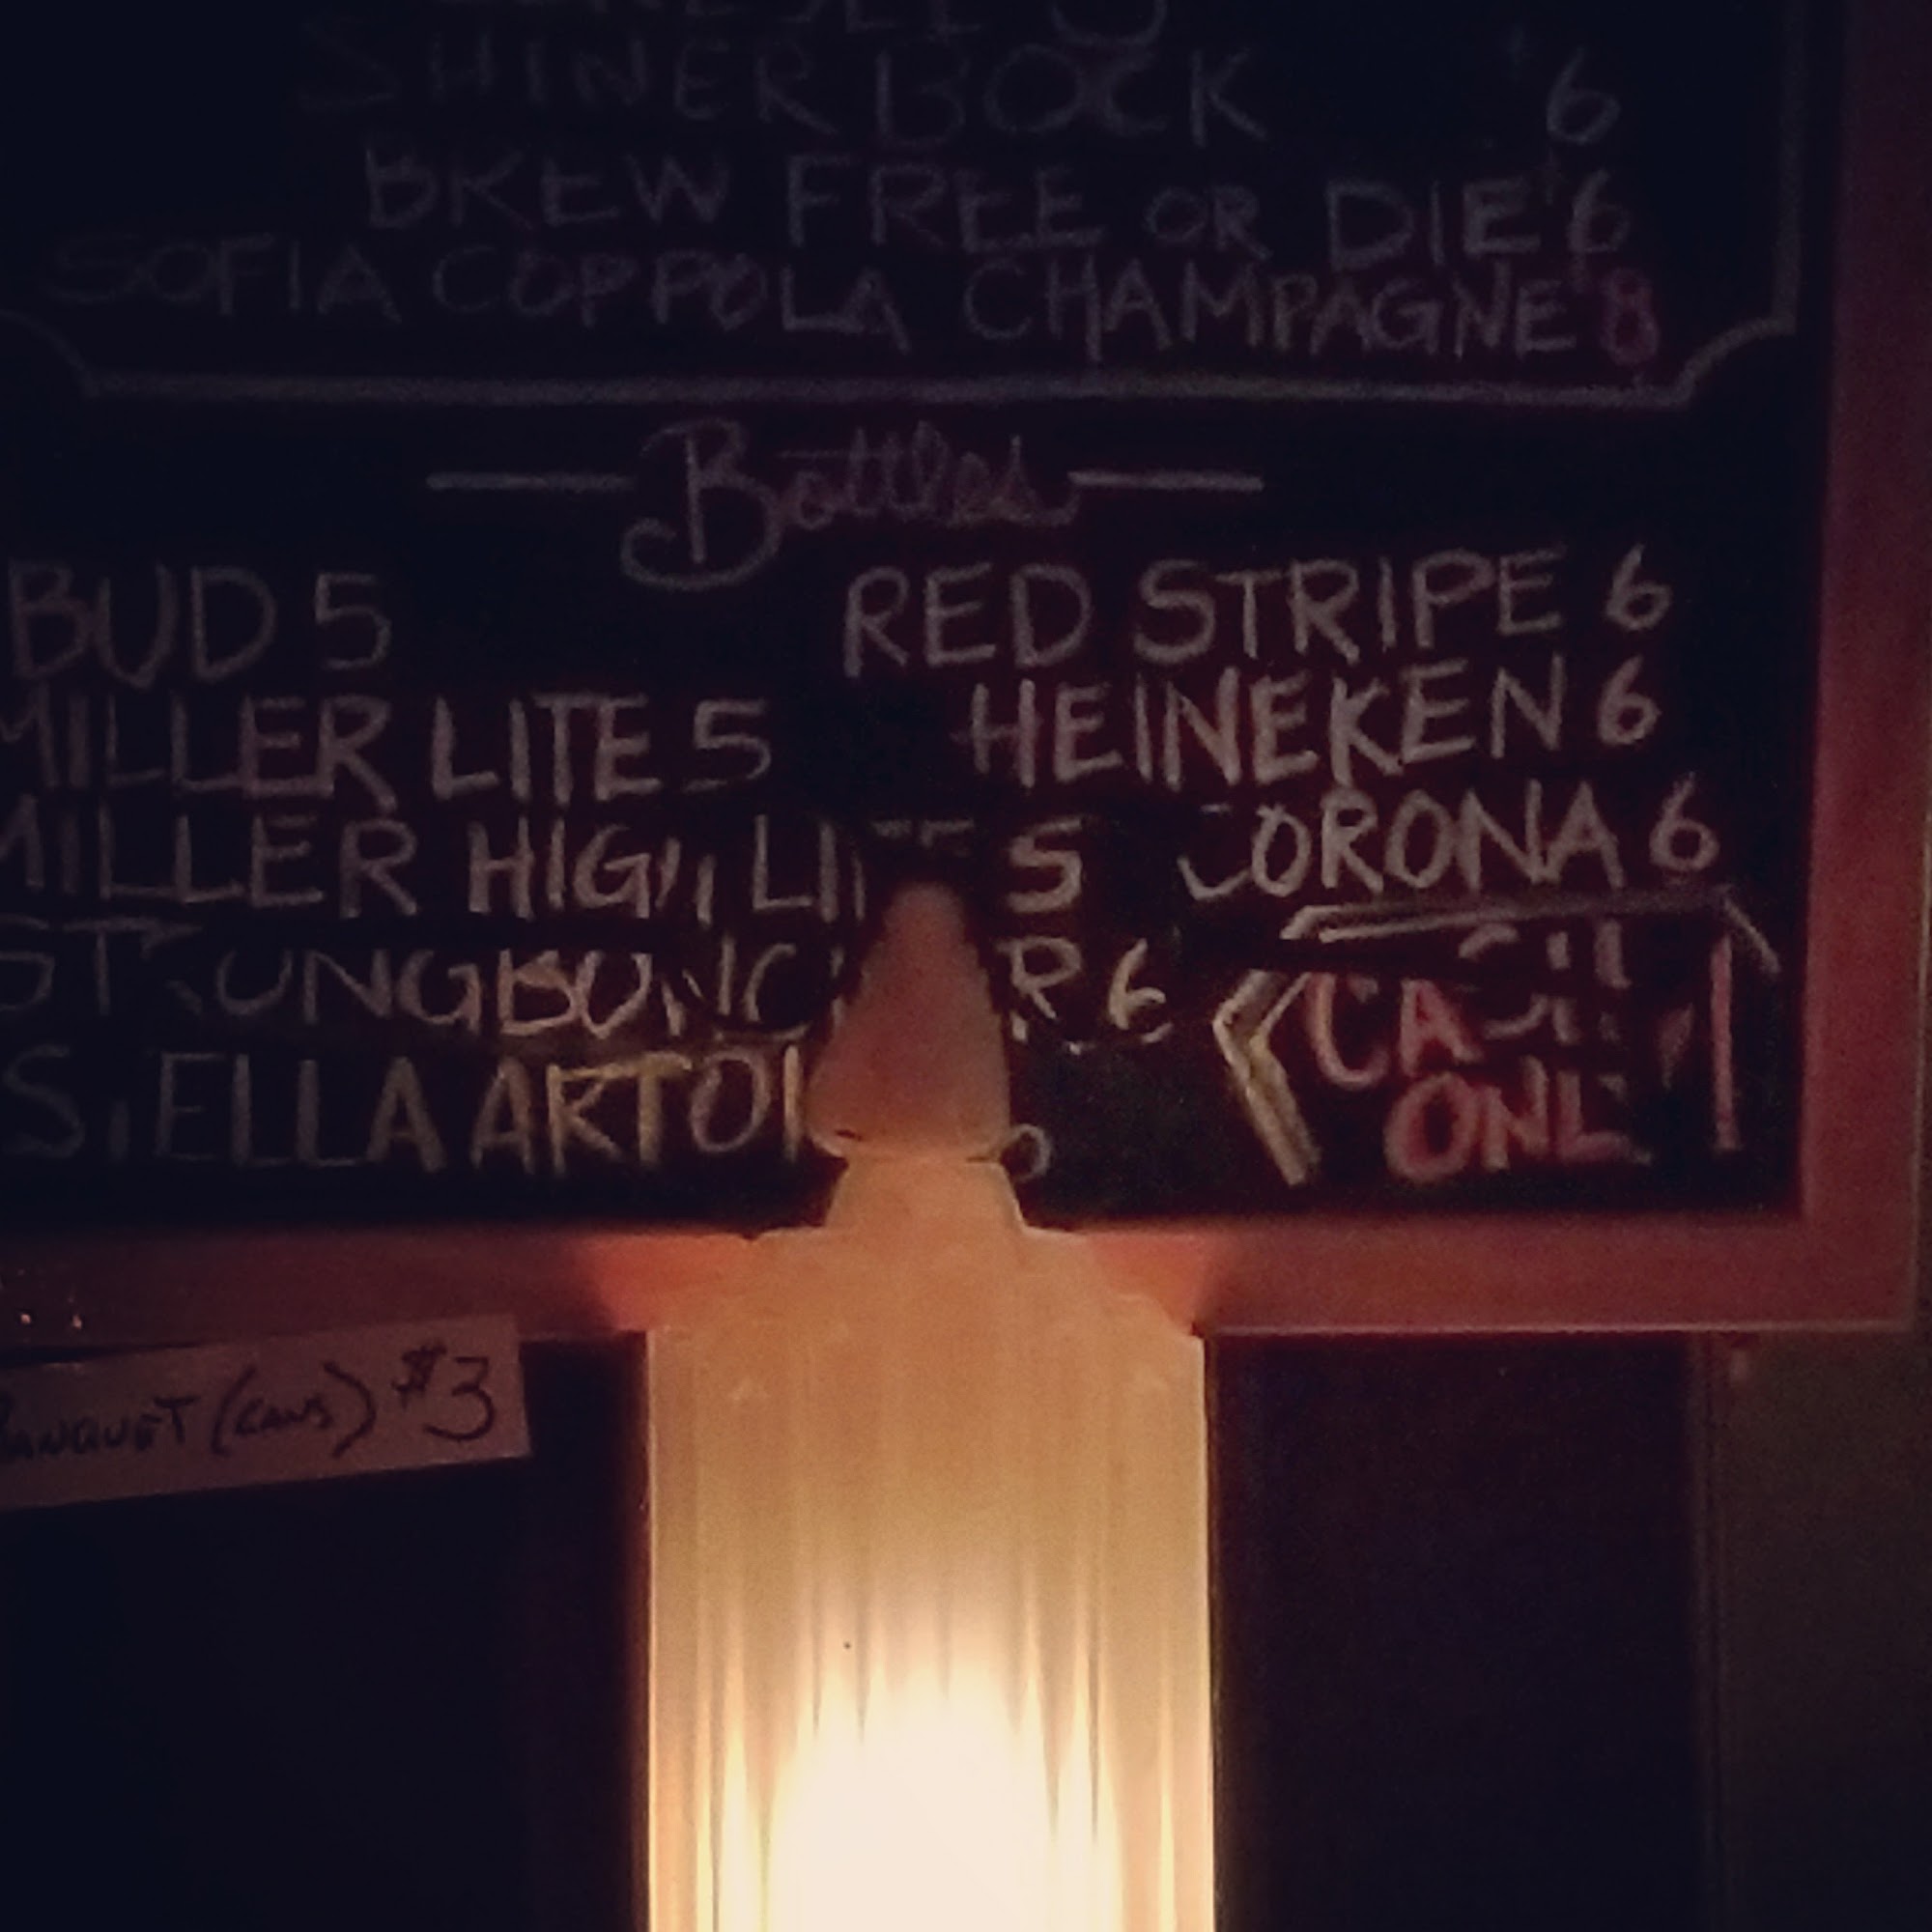 SHINER BOCK $6
BREW FREE OR DIE $6
SOFIA COPPOLA CHAMPAGNE $8
Bottles
BUD 5
MILLER LITE 5
MILLER HIGH LIFE 5
STRONGBOW 6
STELLA ARTOI
RED STRIPE 6
HEINEKEN 6
CORONA 6
CASH
ONLY
BANQUET (CANS) $3